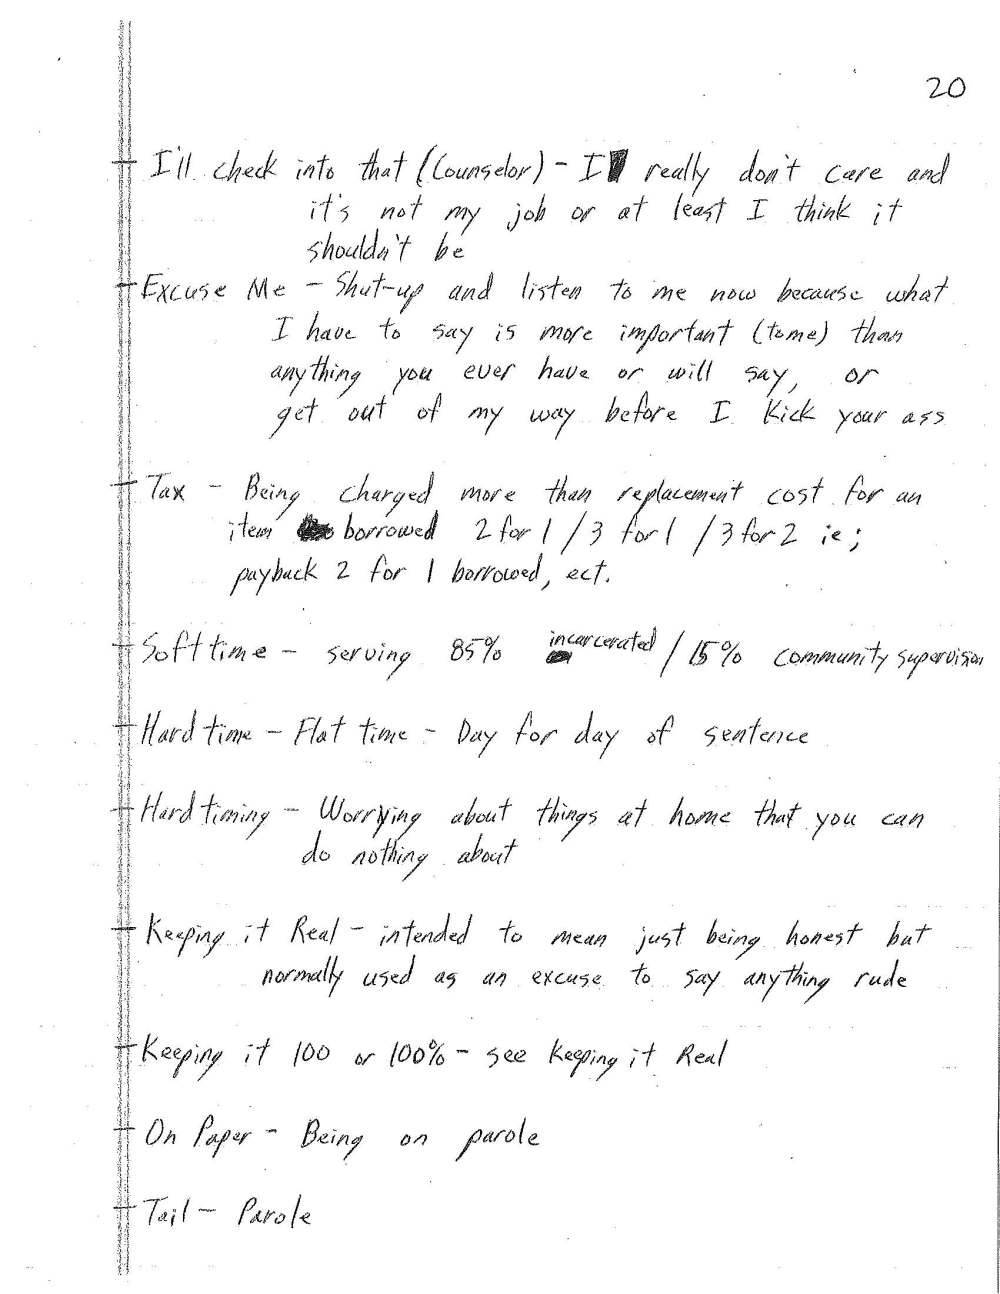 20
I'll check into that (Counselor) - I really don't care and
it's not my job or at least I think it
shouldn't be
Excuse Me - Shut-up and listen to me now because what
I have to say is more important (to me) than
anything you ever have or will say, or
get out of my way before I kick your ass
Tax - Being charged more than replacement cost for an
item borrowed 2 for 1 / 3 for 1 / 3 for 2 ie;
payback 2 for 1 borrowed, ect.
Soft time - serving 85% incarcerated / 15% community supervision
Hard time - Flat time - Day for day of sentence
Hard timing - Worrying about things at home that you can
do nothing about
Keeping it Real - intended to mean just being honest but
normally used as an excuse to say anything rude
Keeping it 100 or 100% - see Keeping it Real
On Paper - Being on parole
Tail - Parole